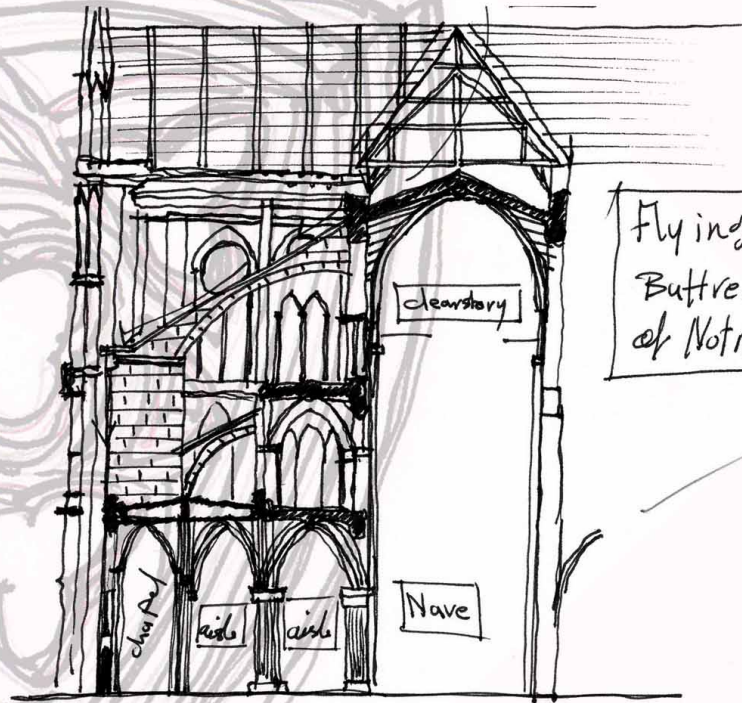 Flying
Buttre
of Notr
clearstory
Nave
chapel
aisle
aisle